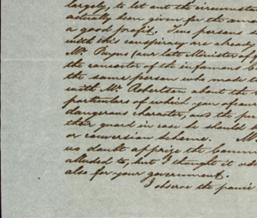 largely, to let out the circumstan
actually been given for the am
a good profit. Two persons
with this conspiracy are already
Mr. Payne (our late Minister of
the concocter of the infamous
the same person who made
with Mr. Robertson about the
particulars of which you
dangerous character, and the
their guard in case he should
or conversion scheme. M
no doubt apprize the
alluded to, but I thought it
also for your government.
I observe the panic